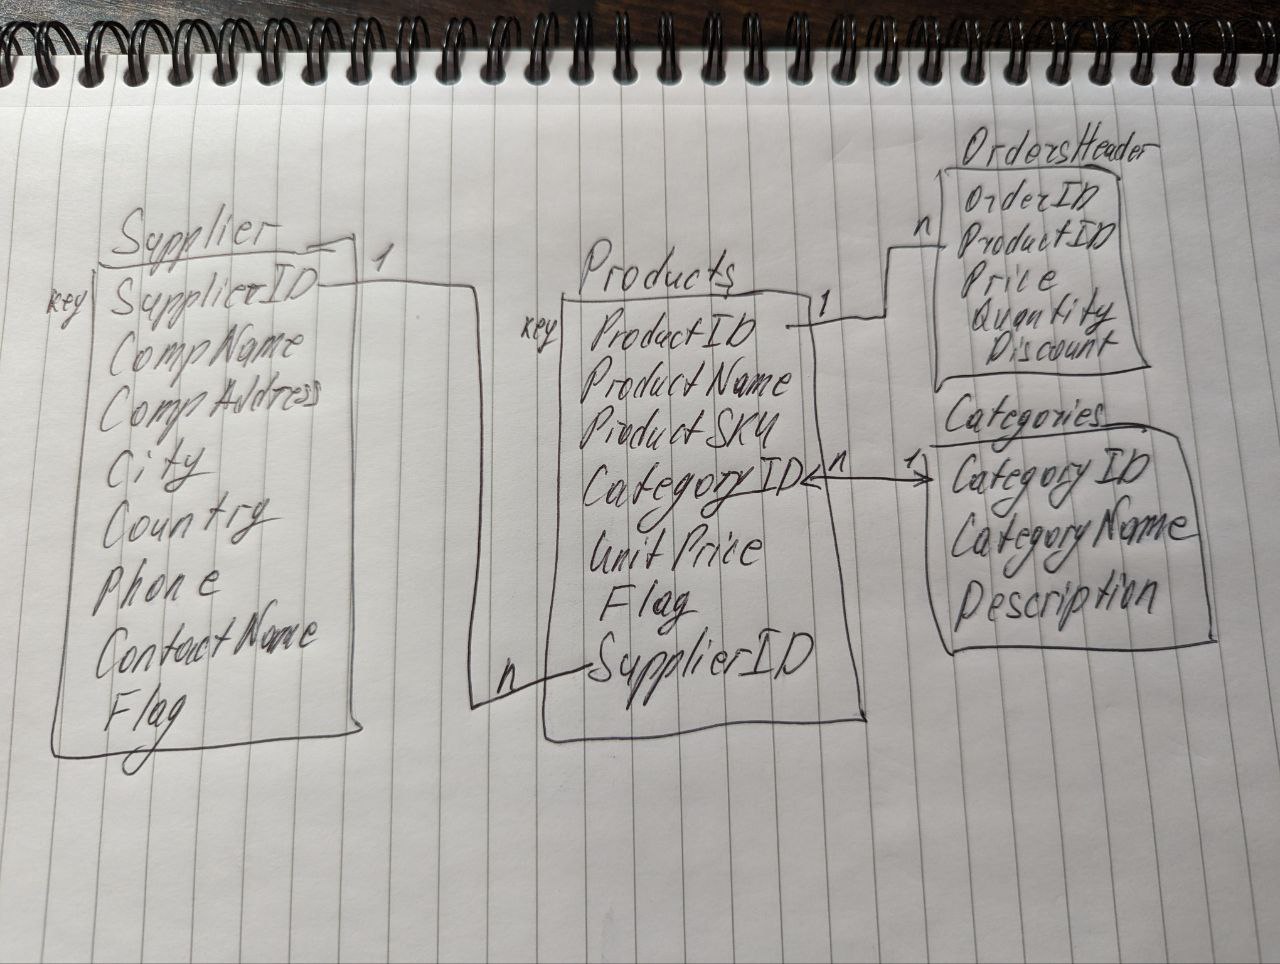 Supplier
key
SupplierID
1
CompName
CompAddress
City
Country
Phone
ContactName
Flag
n
Products
key
ProductID
1
ProductName
ProductSKU
CategoryID
n
UnitPrice
Flag
SupplierID
OrdersHeader
OrderID
n
ProductID
Price
Quantity
Discount
Categories
1
CategoryID
CategoryName
Description